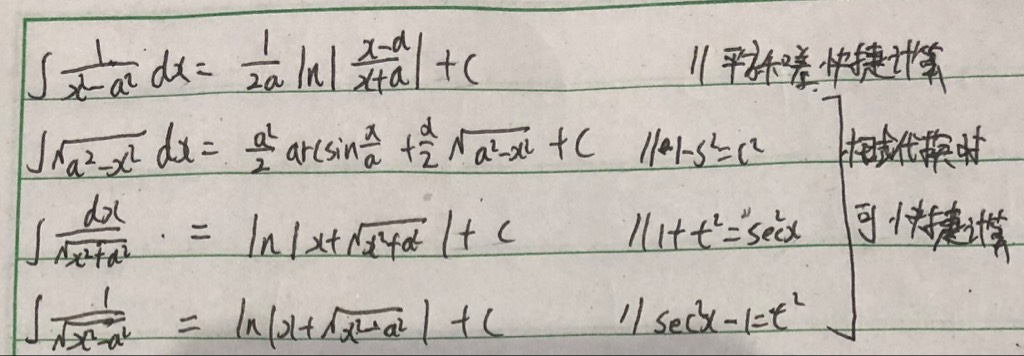 ∫ 1/(x²-a²) dx = 1/(2a) ln|(x-a)/(x+a)| + C // 平方差 快捷计算
∫√(a²-x²) dx = a²/2 arcsin x/a + x/2 √(a²-x²) + C // 1-s²=c²
∫ dx/√(x²+a²) = ln|x+√(x²+a²)| + C // 1+t²=sec²x
∫ 1/√(x²-a²) = ln|x+√(x²-a²)| + C // sec²x-1=t²
代换时
可 快捷计算